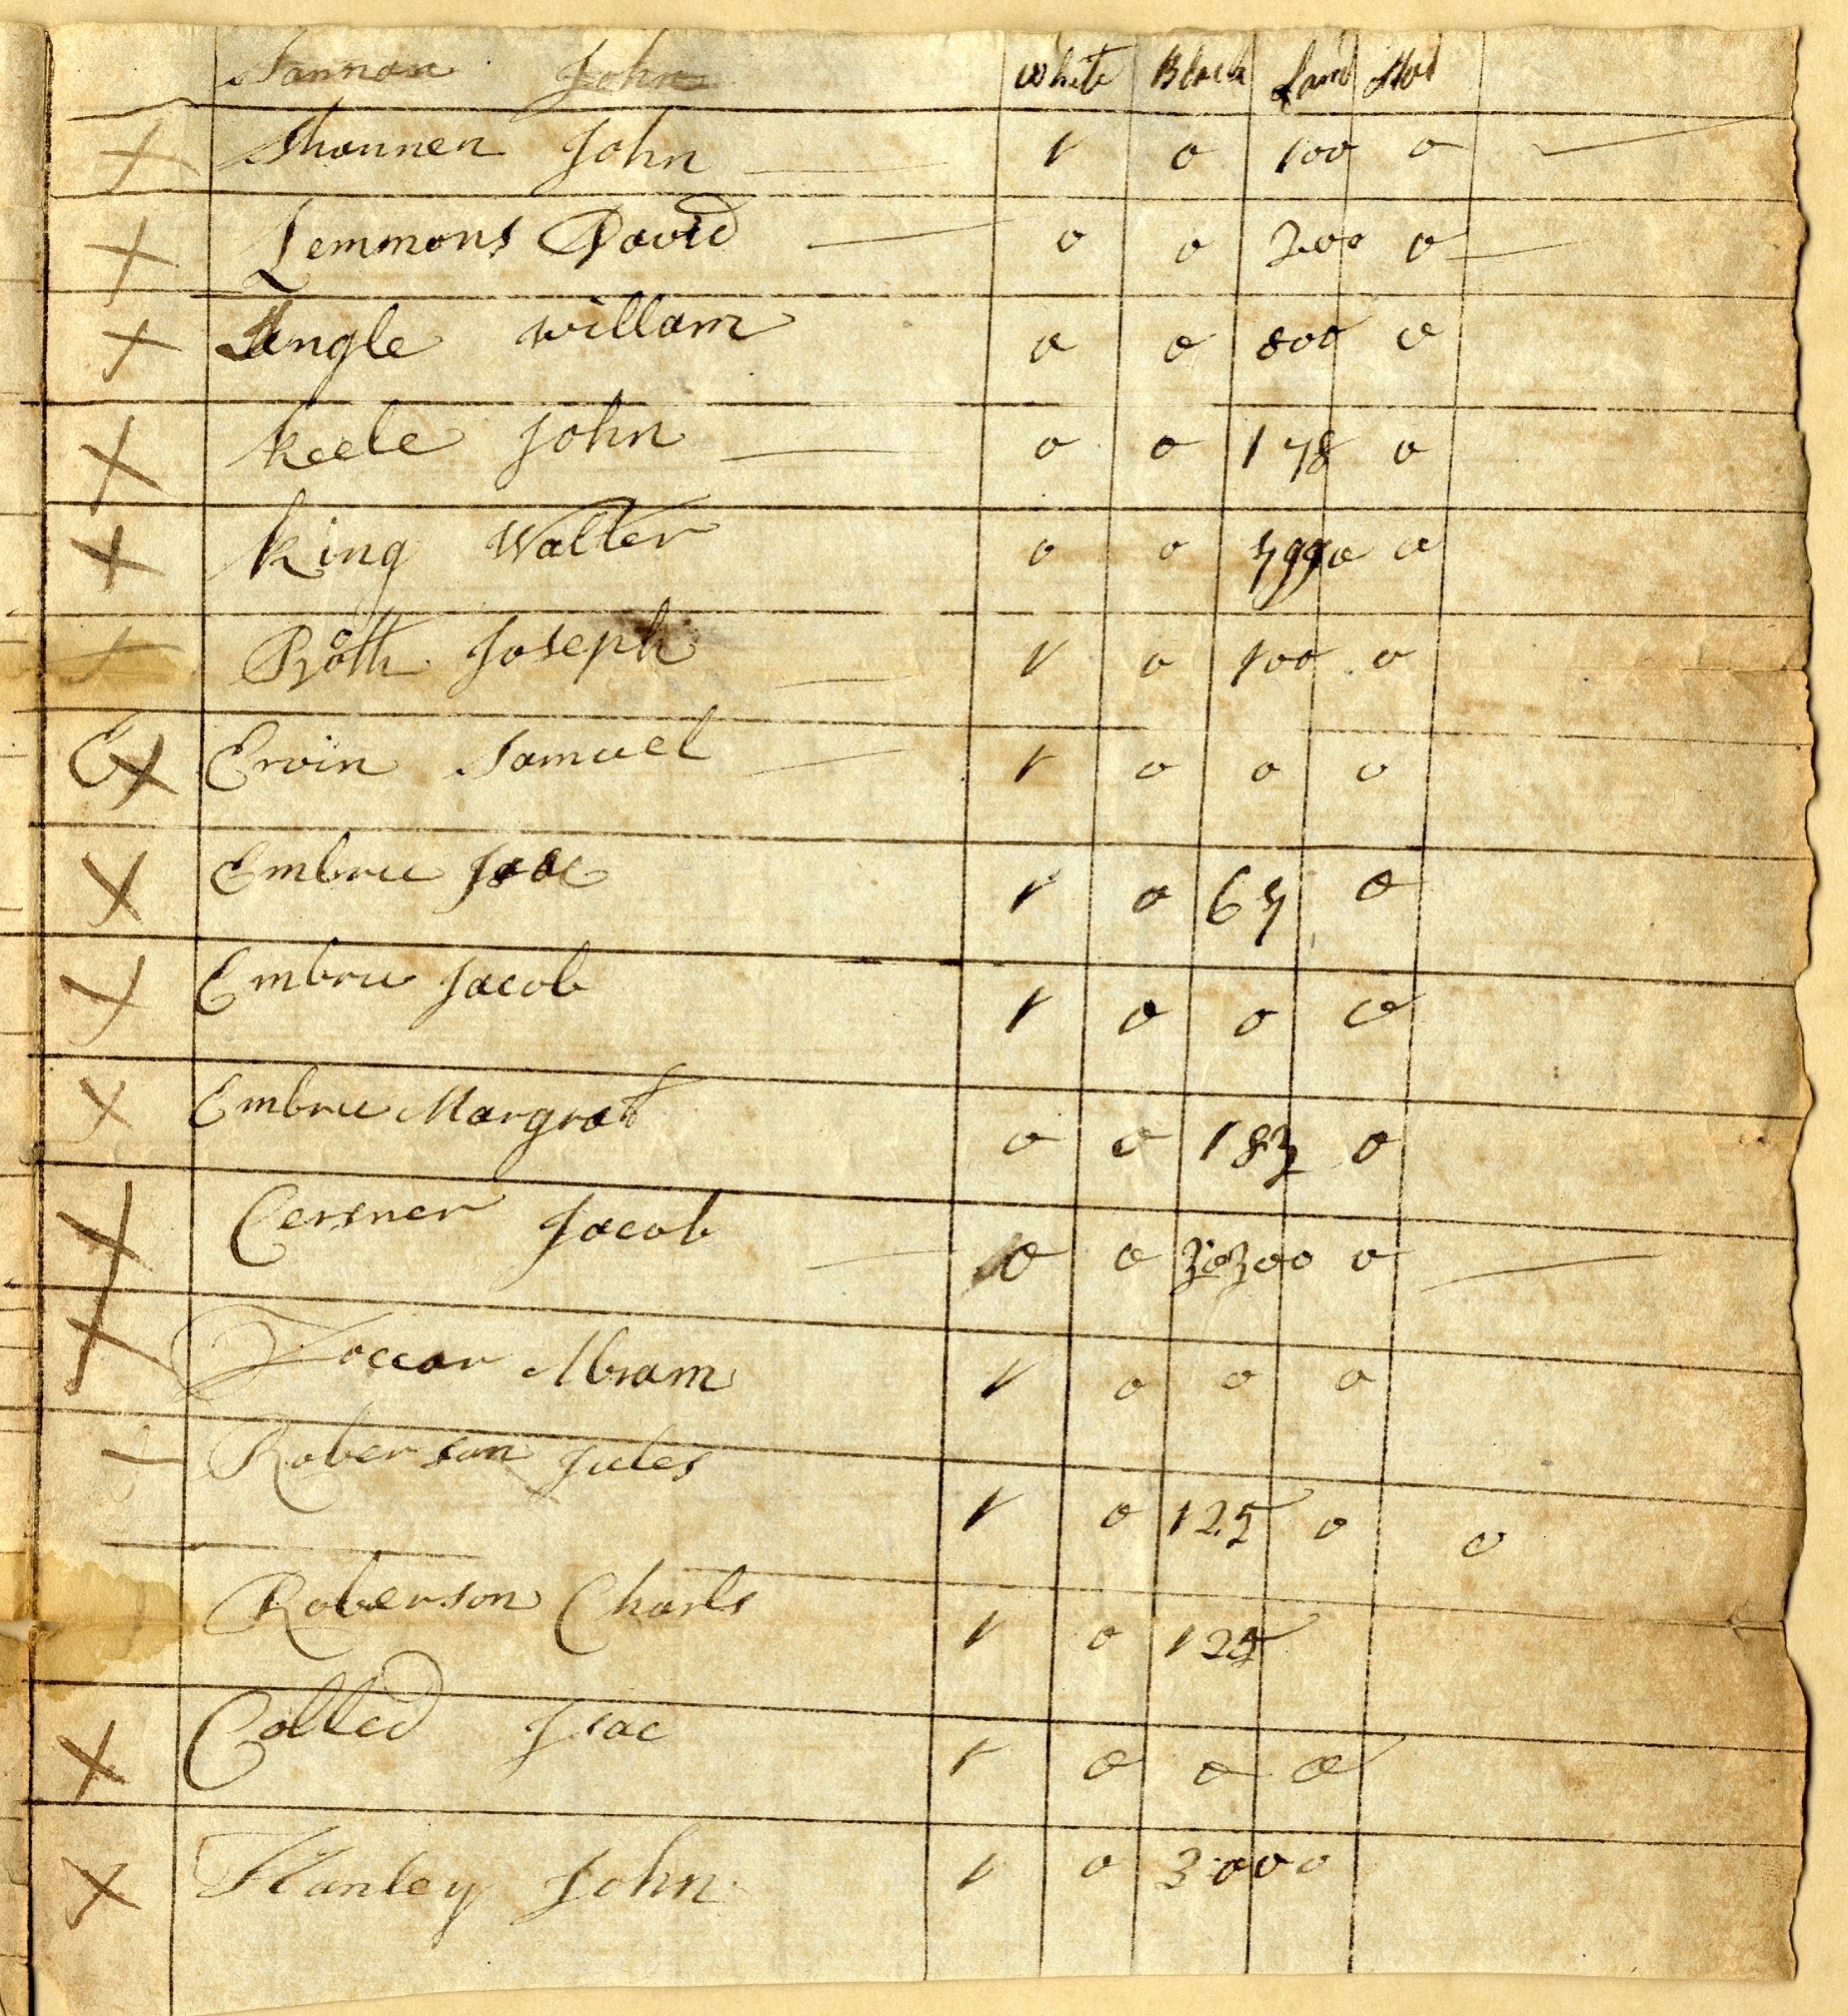 Sannan John White Black Land Stod
X Shannen John — 1 0 100 0 —
X Lemmons David — 0 0 200 0 —
X Angle Willam 0 0 800 0
X Keele John — 0 0 178 0
X King Walter 0 0 5990 0
X Roth Joseph — 1 0 100 0
EX Ervin Samuel — 1 0 0 0
X Embree Isac 1 0 65 0
X Embree Jacob 1 0 0 0
X Embree Margrat 0 0 183 0
X Cersner Jacob — 0 0 30300 0 —
X Toccar Abram 1 0 0 0
Roberson Jules 1 0 125 0 0
Roberson Charls 1 0 125
X Colled Isac 1 0 0 0
X Stanley John 1 0 3000